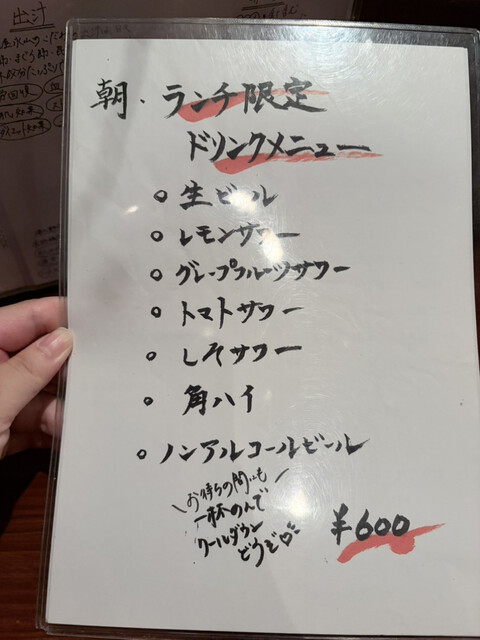 出汁
朝・ランチ限定
ドリンクメニュー
○ 生ビール
○ レモンサワー
○ グレープフルーツサワー
○ トマトサワー
○ しそサワー
○ 角ハイ
○ ノンアルコールビール
\お待ちの間…も/
一杯のんで
クールダウン
どうぞ♡
¥600